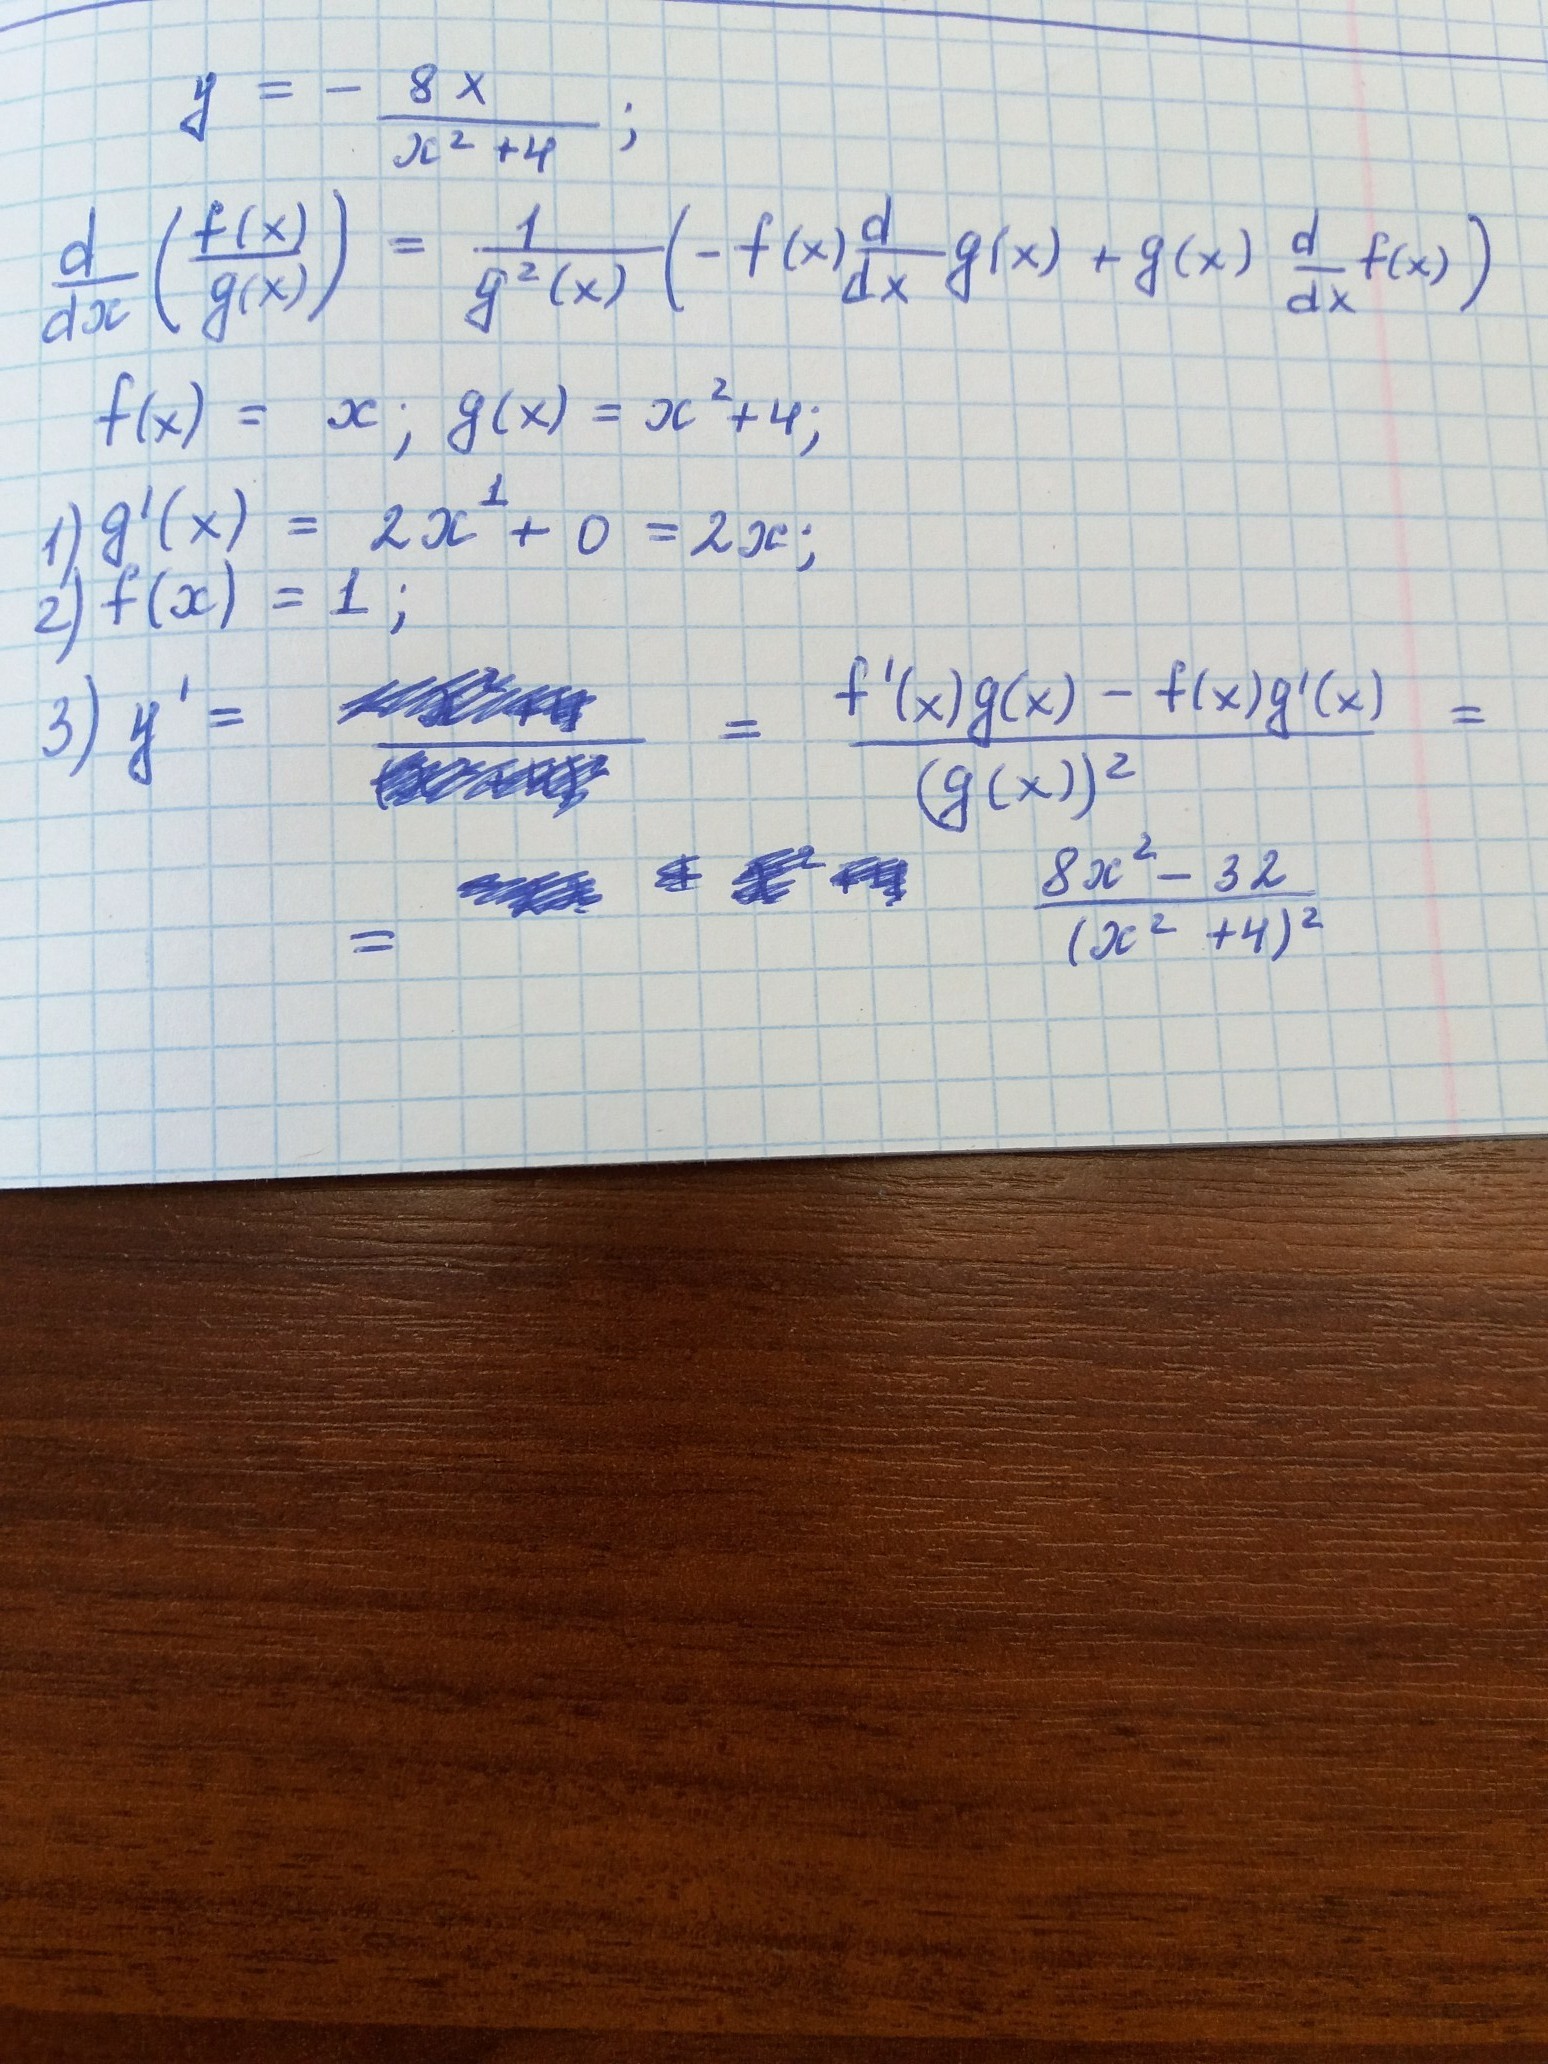 y = - 8x / x² + 4 ;
d/dx (f(x)/g(x)) = 1/g²(x) (-f(x) d/dx g(x) + g(x) d/dx f(x))
f(x) = x; g(x) = x² + 4;
1) g'(x) = 2x¹ + 0 = 2x;
2) f(x) = 1;
3) y' = = f'(x)g(x) - f(x)g'(x) / (g(x))² =
= 8x² - 32 / (x² + 4)²